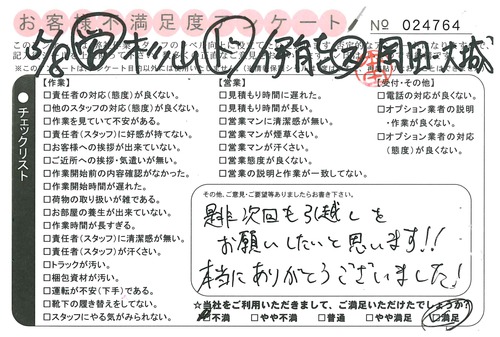 お客様不満足度アンケート
No 024764
チェックリスト
【作業】
□責任者の対応(態度)が良くない。
□他のスタッフの対応(態度)が良くない。
□作業を見ていて不安がある。
□責任者(スタッフ)に好感が持てない。
□お客様への挨拶が出来ていない。
□ご近所への挨拶・気遣いが無い。
□作業開始前の内容確認がなかった。
□作業開始時間が遅れた。
□荷物の取り扱いが雑である。
□お部屋の養生が出来ていない。
□作業時間が長すぎる。
□責任者(スタッフ)に清潔感が無い。
□責任者(スタッフ)が汗くさい。
□トラックが汚い。
□梱包資材が汚い。
□運転が不安(下手)である。
□靴下の履き替えをしてない。
□スタッフにやる気がみられない。
【営業】
□見積もり時間に遅れた。
□見積もり時間が長い。
□営業マンに清潔感が無い。
□営業マンが煙草くさい。
□営業マンが汗くさい。
□営業態度が良くない。
□営業の説明と作業が一致してない。
【受付・その他】
□電話の対応が良くない。
□オプション業者の説明
・作業が良くない。
□オプション業者の対応
(態度)が良くない。
その他、ご意見・ご要望等ありましたらお書き下さい。
是非次回も引越しを
お願いしたいと思います!!
本当にありがとうございました!
☆当社をご利用いただきまして、ご満足いただけたでしょうか?
□不満 □やや不満 □普通 □やや満足 □満足